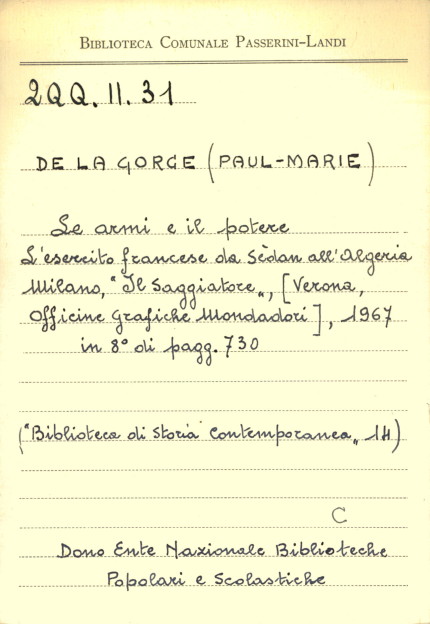 BIBLIOTECA COMUNALE PASSERINI-LANDI
2QQ. II. 31
DE LA GORCE (PAUL-MARIE)
Le armi e il potere
L'esercito francese da Sèdan all'Algeria
Milano, "Il Saggiatore", [Verona,
Officine Grafiche Mondadori], 1967
in 8° di pagg. 730
("Biblioteca di Storia Contemporanea" 14)
C
Dono Ente Nazionale Biblioteche
Popolari e Scolastiche